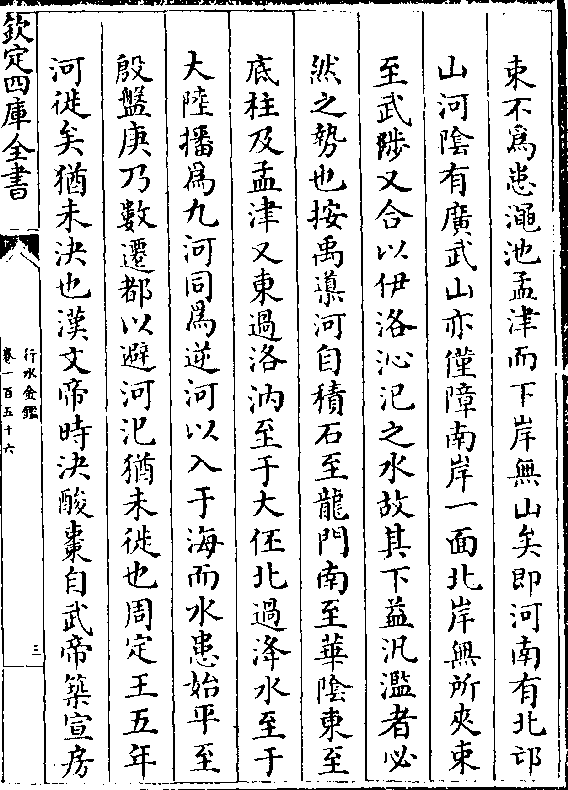 束不為患澠池孟津而下岸無山矣即河南有北邙
山河陰有廣武山亦僅障南岸一面北岸無所夾束
至武陟又合以伊洛沁汜之水故其下益汎濫者必
然之勢也按禹導河自積石至龍門南至華陰東至
底柱及孟津又東過洛汭至于大伾北過洚水至于
大陸播為九河同為逆河以入于海而水患始平至
殷盤庚乃數遷都以避河汜猶未徙也周定王五年
河徙矣猶未決也漢文帝時決酸棗自武帝築宣房
欽定四庫全書
行水金鑑
卷一百五十六
三